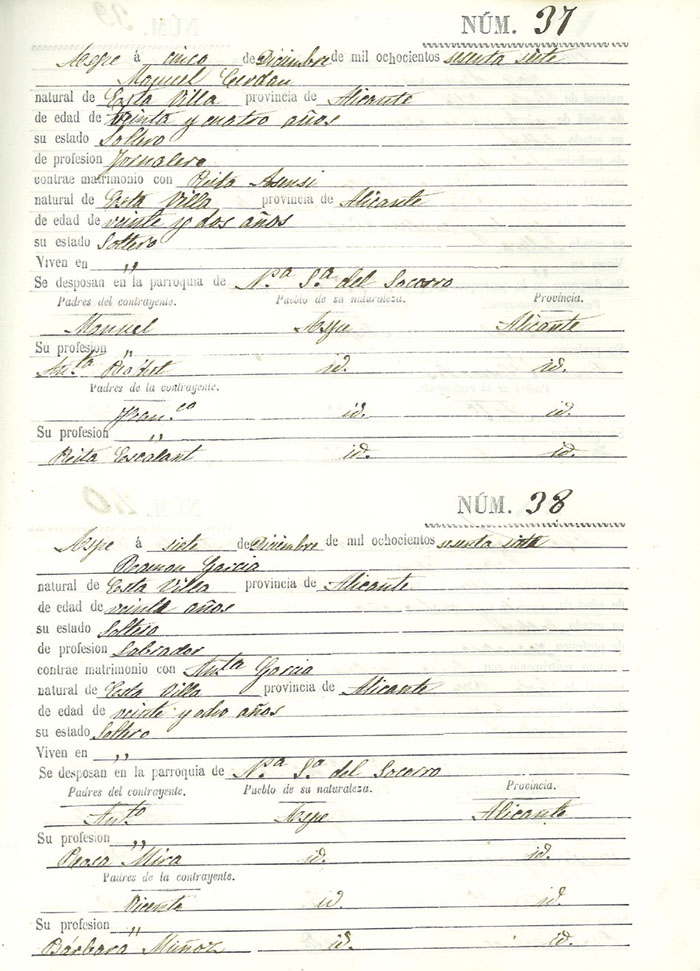 NÚM. 37
Aspe á cinco de Diciembre de mil ochocientos sesenta siete
Manuel Cerdan
natural de Esta Villa provincia de Alicante
de edad de treinta y cuatro años
su estado Soltero
de profesion Jornalero
contrae matrimonio con Rita Asensi
natural de Esta Villa provincia de Alicante
de edad de veinte y dos años
su estado Soltero
Viven en "
Se desposan en la parroquia de N.ª S.ª del Socorro
Padres del contrayente. Pueblo de su naturaleza. Provincia.
Manuel Aspe Alicante
Su profesion "
Ant.ª id. id.
Padres de la contrayente.
Fran.co id. id.
Su profesion "
Rita Escalant id. id.
NÚM. 38
Aspe á siete de Diciembre de mil ochocientos sesenta siete
Ramon Garcia
natural de Esta Villa provincia de Alicante
de edad de veinte años
su estado Soltero
de profesion Labrador
contrae matrimonio con Ant.ª Garcia
natural de Esta Villa provincia de Alicante
de edad de veinte y ocho años
su estado Soltero
Viven en "
Se desposan en la parroquia de N.ª S.ª del Socorro
Padres del contrayente. Pueblo de su naturaleza. Provincia.
Ant.º Aspe Alicante
Su profesion "
Rosa Mira id. id.
Padres de la contrayente.
Vicente id. id.
Su profesion "
Bárbara Muñoz id. id.